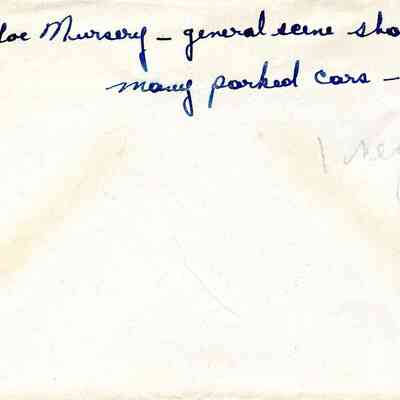 loe Nursery - general scene sho
many parked cars -
1 neg